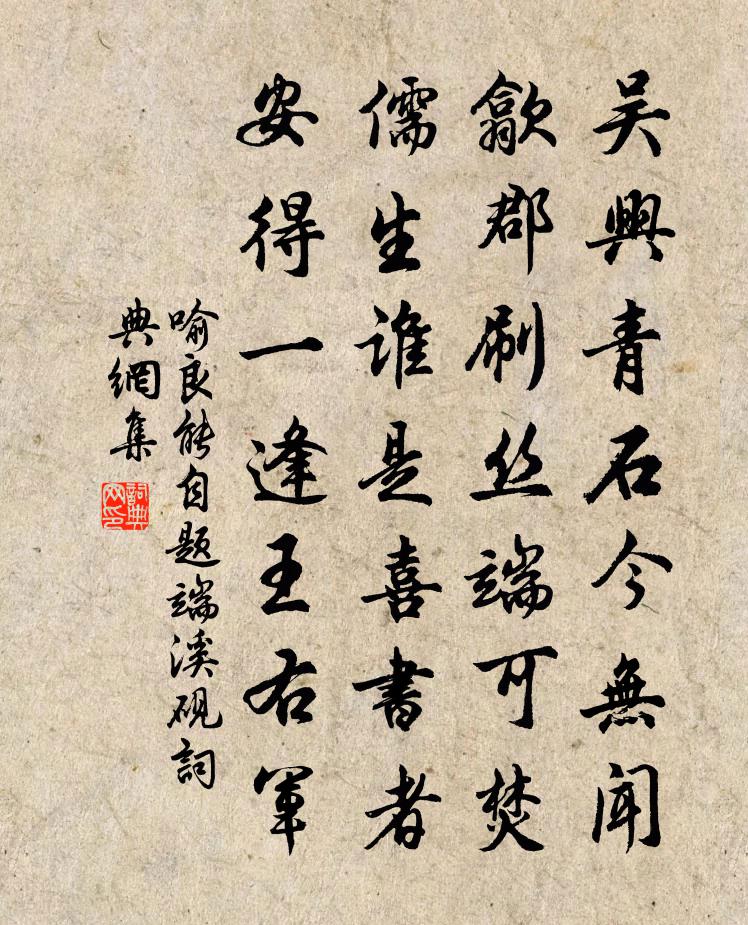 吴興青石今無聞
歙郡刷丝端可焚
儒生谁是喜書者
安得一逢王右軍
喻良能自题端溪砚詞
典網集
詞典
网印